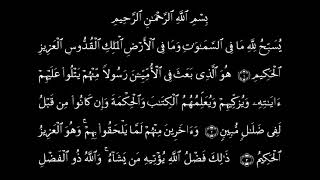 بِسْمِ ٱللَّهِ ٱلرَّحْمَٰنِ ٱلرَّحِيمِ
يُسَبِّحُ لِلَّهِ مَا فِى ٱلسَّمَٰوَٰتِ وَمَا فِى ٱلْأَرْضِ ٱلْمَلِكِ ٱلْقُدُّوسِ ٱلْعَزِيزِ
ٱلْحَكِيمِ ۝ هُوَ ٱلَّذِى بَعَثَ فِى ٱلْأُمِّيِّۦنَ رَسُولًا مِّنْهُمْ يَتْلُوا۟ عَلَيْهِمْ
ءَايَٰتِهِۦ وَيُزَكِّيهِمْ وَيُعَلِّمُهُمُ ٱلْكِتَٰبَ وَٱلْحِكْمَةَ وَإِن كَانُوا۟ مِن قَبْلُ
لَفِى ضَلَٰلٍ مُّبِينٍ ۝ وَءَاخَرِينَ مِنْهُمْ لَمَّا يَلْحَقُوا۟ بِهِمْ ۚ وَهُوَ ٱلْعَزِيزُ
ٱلْحَكِيمُ ۝ ذَٰلِكَ فَضْلُ ٱللَّهِ يُؤْتِيهِ مَن يَشَآءُ ۚ وَٱللَّهُ ذُو ٱلْفَضْلِ